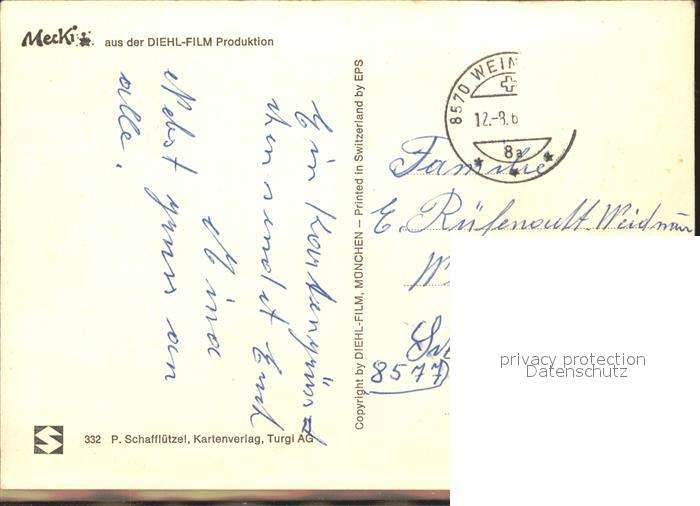 Mecki
aus der DIEHL-FILM Produktion
Ein Kartengrüss=
chen sendet Euch
Nina
Nebst gruss an
alle.
Copyright by DIEHL-FILM, MÜNCHEN – Printed in Switzerland by EPS
8570 WEIN
12.-9.6
8a
Familie
E. Rüfenacht-Weidman
8577
privacy protection
Datenschutz
332 P. Schafflützel, Kartenverlag, Turgi AG